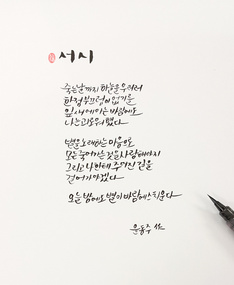 서시
죽는 날까지 하늘을 우러러
한 점 부끄럼이 없기를
잎새에 이는 바람에도
나는 괴로워했다
별을 노래하는 마음으로
모든 죽어가는 것을 사랑해야지
그리고 나한테 주어진 길을
걸어가야겠다
오늘 밤에도 별이 바람에 스치운다
윤동주 님